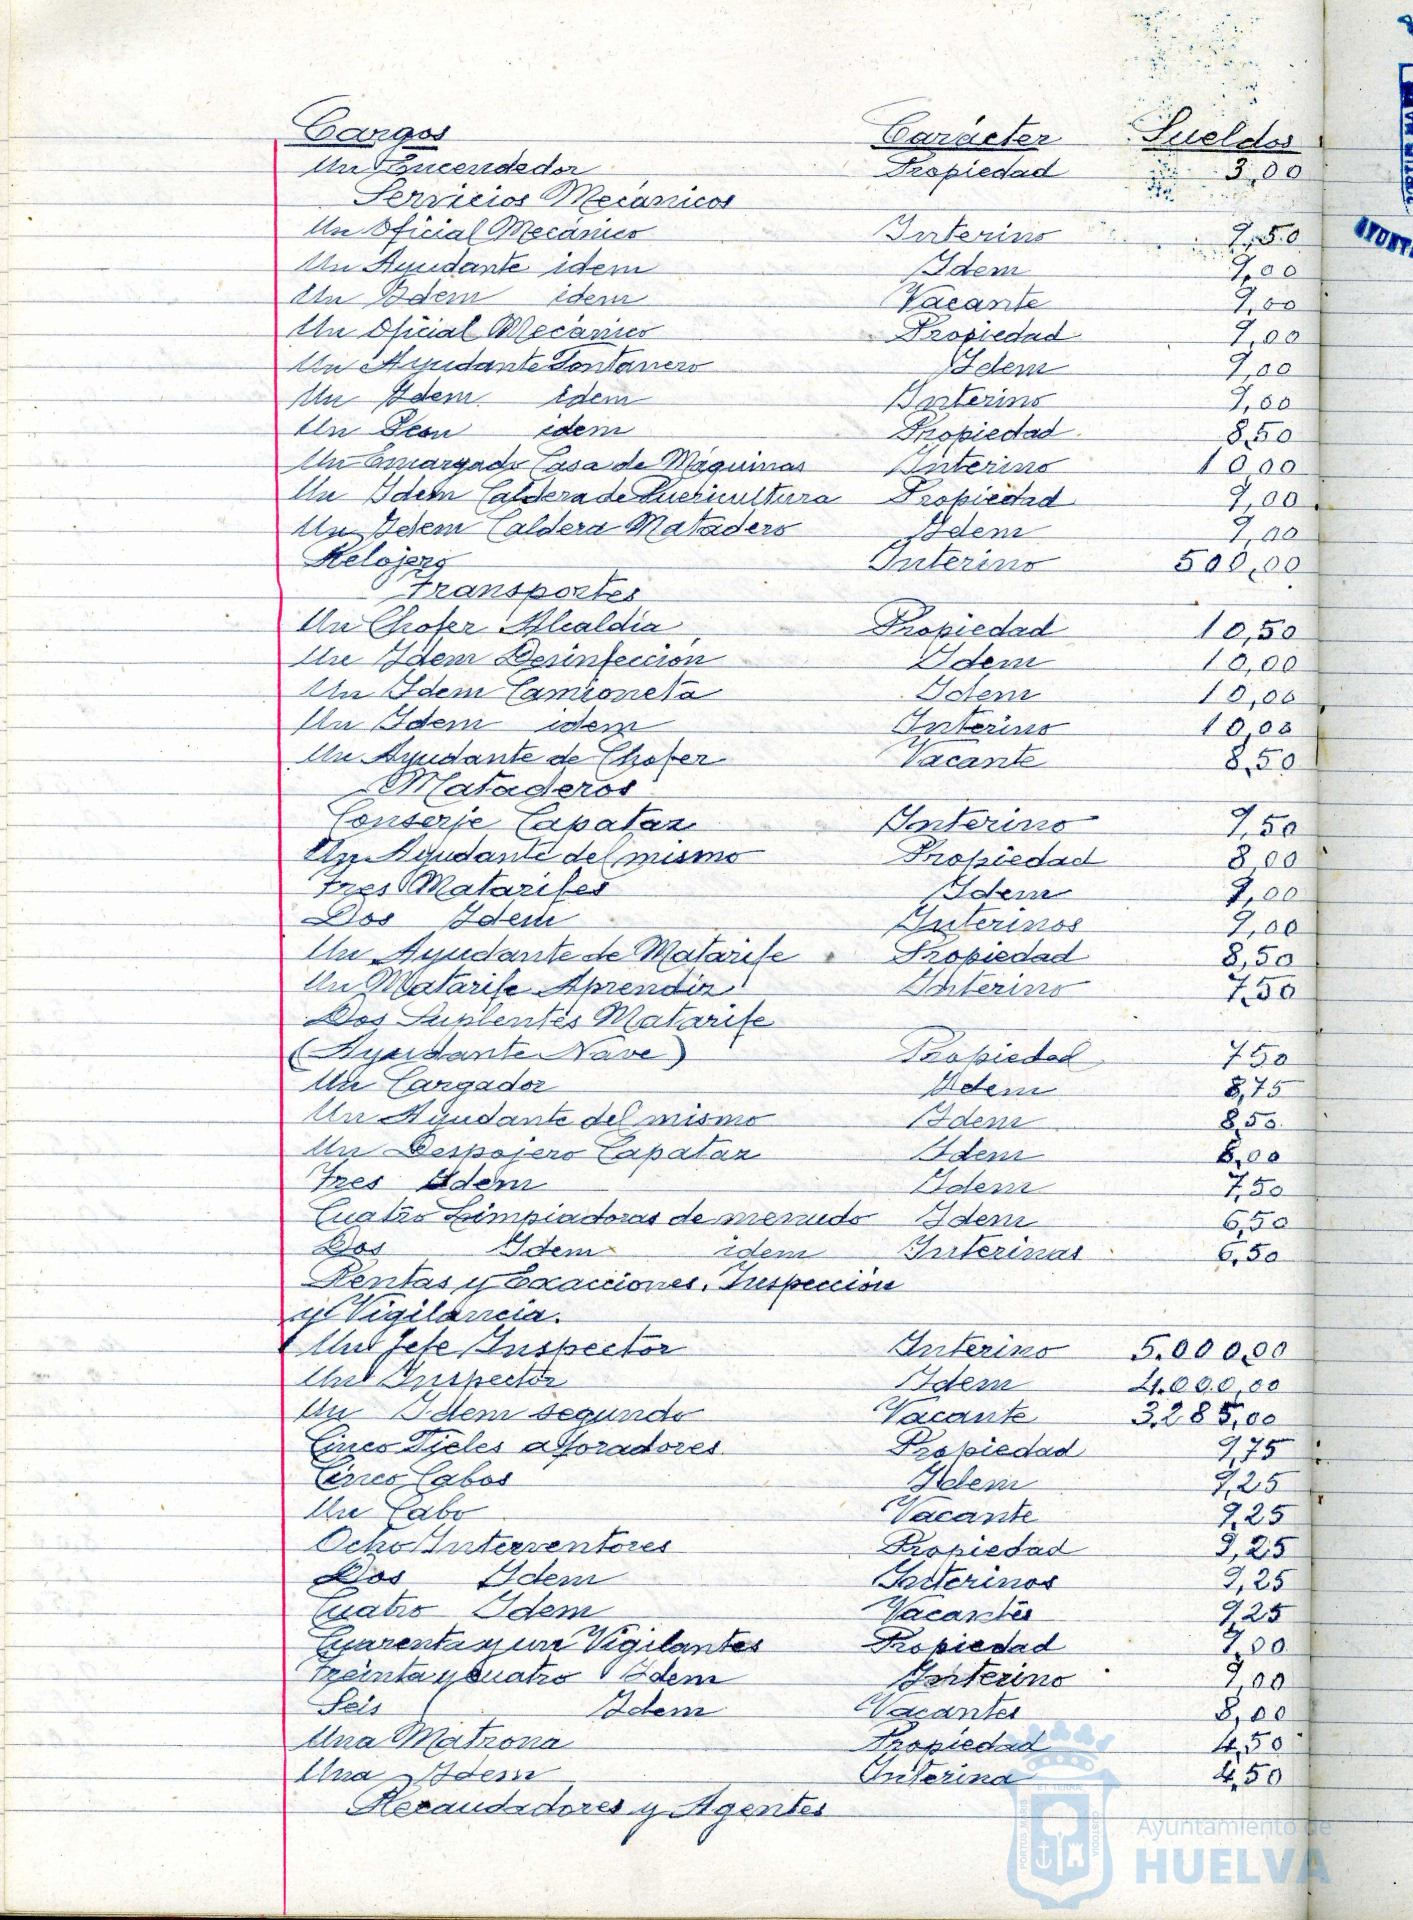 Cargos Carácter Sueldos
Un Encendedor Propiedad 3,00
Servicios Mecánicos
Un Oficial Mecánico Interino 9,50
Un Ayudante idem Idem 9,00
Un Idem idem Vacante 9,00
Un Oficial Mecánico Propiedad 9,00
Un Ayudante Fontanero Idem 9,00
Un Idem idem Interino 9,00
Un Peon idem Propiedad 8,50
Un Encargado Casa de Máquinas Interino 10,00
Un Idem Caldera de Puericultura Propiedad 9,00
Un Idem Caldera Matadero Idem 9,00
Relojero Interino 500,00
Transportes
Un Chofer Alcaldía Propiedad 10,50
Un Idem Desinfección Idem 10,00
Un Idem Camioneta Idem 10,00
Un Idem idem Interino 10,00
Un Ayudante de Chofer Vacante 8,50
Mataderos
Conserje Capataz Interino 9,50
Un Ayudante del mismo Propiedad 8,00
Tres Matarifes Idem 9,00
Dos Idem Interinos 9,00
Un Ayudante de Matarife Propiedad 8,50
Un Matarife Aprendiz Interino 7,50
Dos Suplentes Matarife
(Ayudante Nave) Propiedad 7 50
Un Cargador Idem 8,75
Un Ayudante del mismo Idem 8,50
Un Despojero Capataz Idem 8,00
Tres Idem Idem 7,50
Cuatro Limpiadoras de menudo Idem 6,50
Dos Idem idem Interinas 6,50
Rentas y Exacciones. Inspección
y Vigilancia.
Un Jefe Inspector Interino 5.000,00
Un Inspector Idem 4.000,00
Un Idem segundo Vacante 3.285,00
Cinco Fieles aforadores Propiedad 9,75
Cinco Cabos Idem 9,25
Un Cabo Vacante 9,25
Ocho Interventores Propiedad 9,25
Dos Idem Interinos 9,25
Cuatro Idem Vacantes 9,25
Cuarenta y un Vigilantes Propiedad 9,00
Treinta y cuatro Idem Interino 9,00
Seis Idem Vacantes 8,00
Una Matrona Propiedad 4,50
Una Idem Interina 4,50
Recaudadores y Agentes
Ayuntamiento de
HUELVA